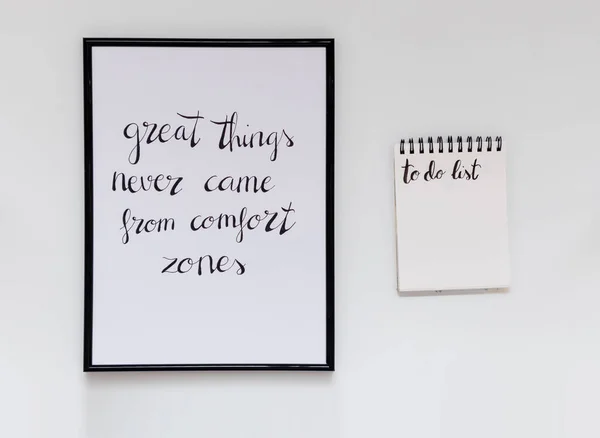 great things
never came
from comfort
zones
to do list